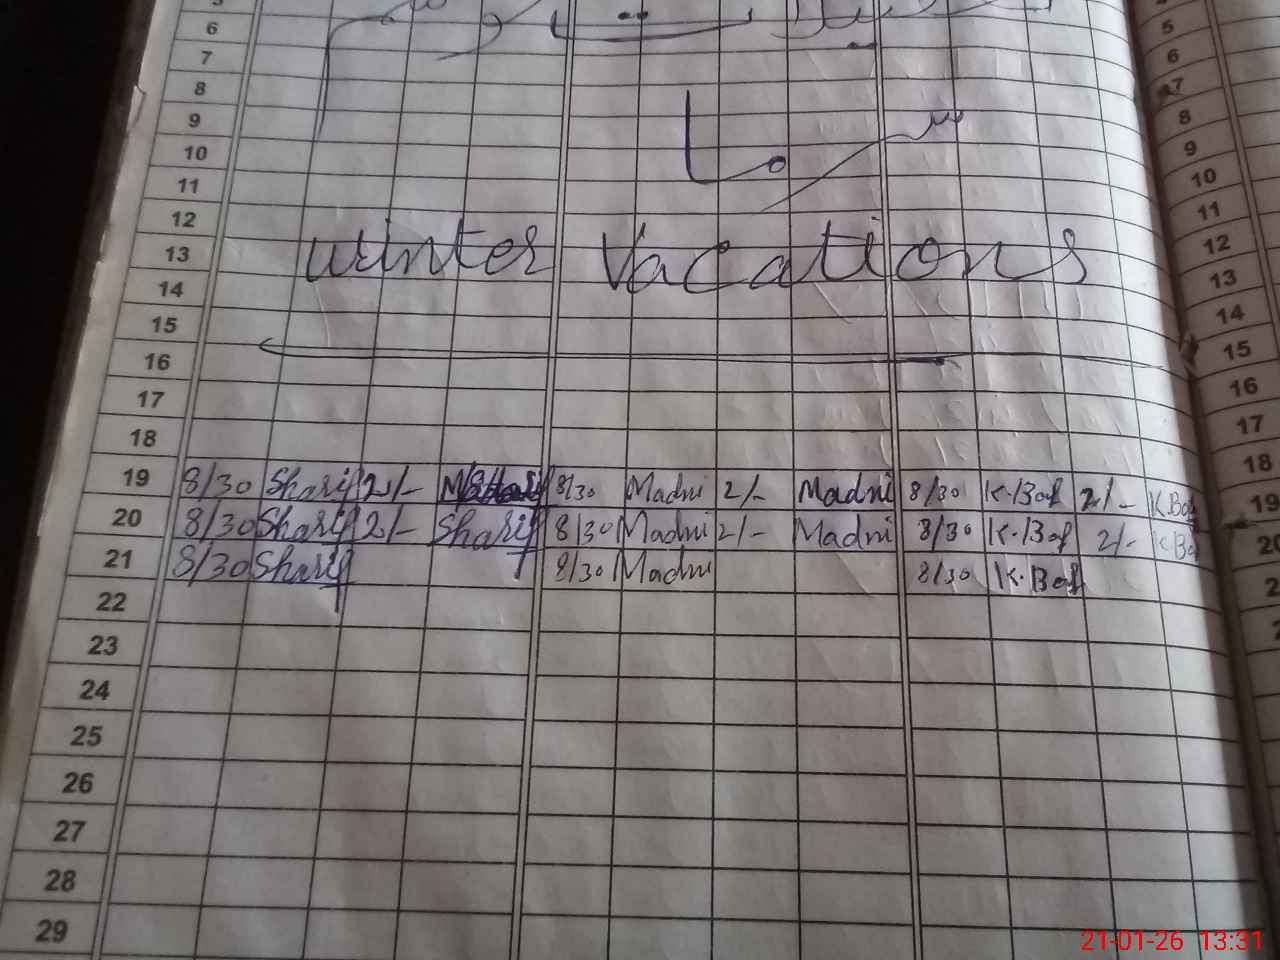 5
6
7
8
9
10
11
12
13 Winter Vacations
14
15
16
17
18
19 8/30 Sharif 2/- 8/30 Madni 2/- Madni 8/30 K.Bof 2/- K.Bof
20 8/30 Sharif 2/- Sharif 8/30 Madni 2/- Madni 8/30 K.Bof 2/- K.Bof
21 8/30 Sharif 8/30 Madni 8/30 K.Bof
22
23
24
25
26
27
28
29
5
6
7
8
9
10
11
12
13
14
15
16
17
18
19
20
21-01-26 13:31